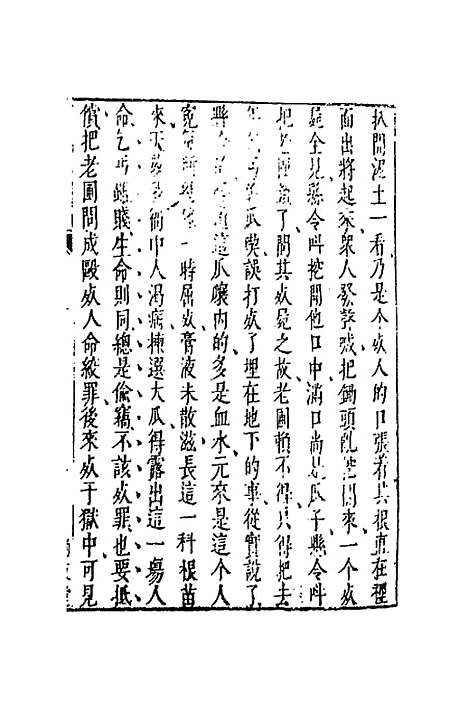 扒開泥土一看乃是个𣦸人的口張着其根直在裡
面出將起來衆人發聲喊把鋤頭亂挖開來一个𣦸
屍全見縣令呌挖開他口中滿口尚是瓜子縣令呌
把老圃鎖了問其𣦸屍之故老圃頼不得只得把去
年乞丐偷瓜喫誤打𣦸了埋在地下的事從實說了
這瓜瓤内的多是血水元來是這个人
冤氣所結他一時屈𣦸膏液未散滋長這一科根苗
來天敎衙中人渇病揀選大瓜得露出這一塲人
命乞丐雖賤生命則同總是偷竊不該𣦸罪也要抵
償把老圃問成毆𣦸人命絞罪後來𣦸于獄中可見